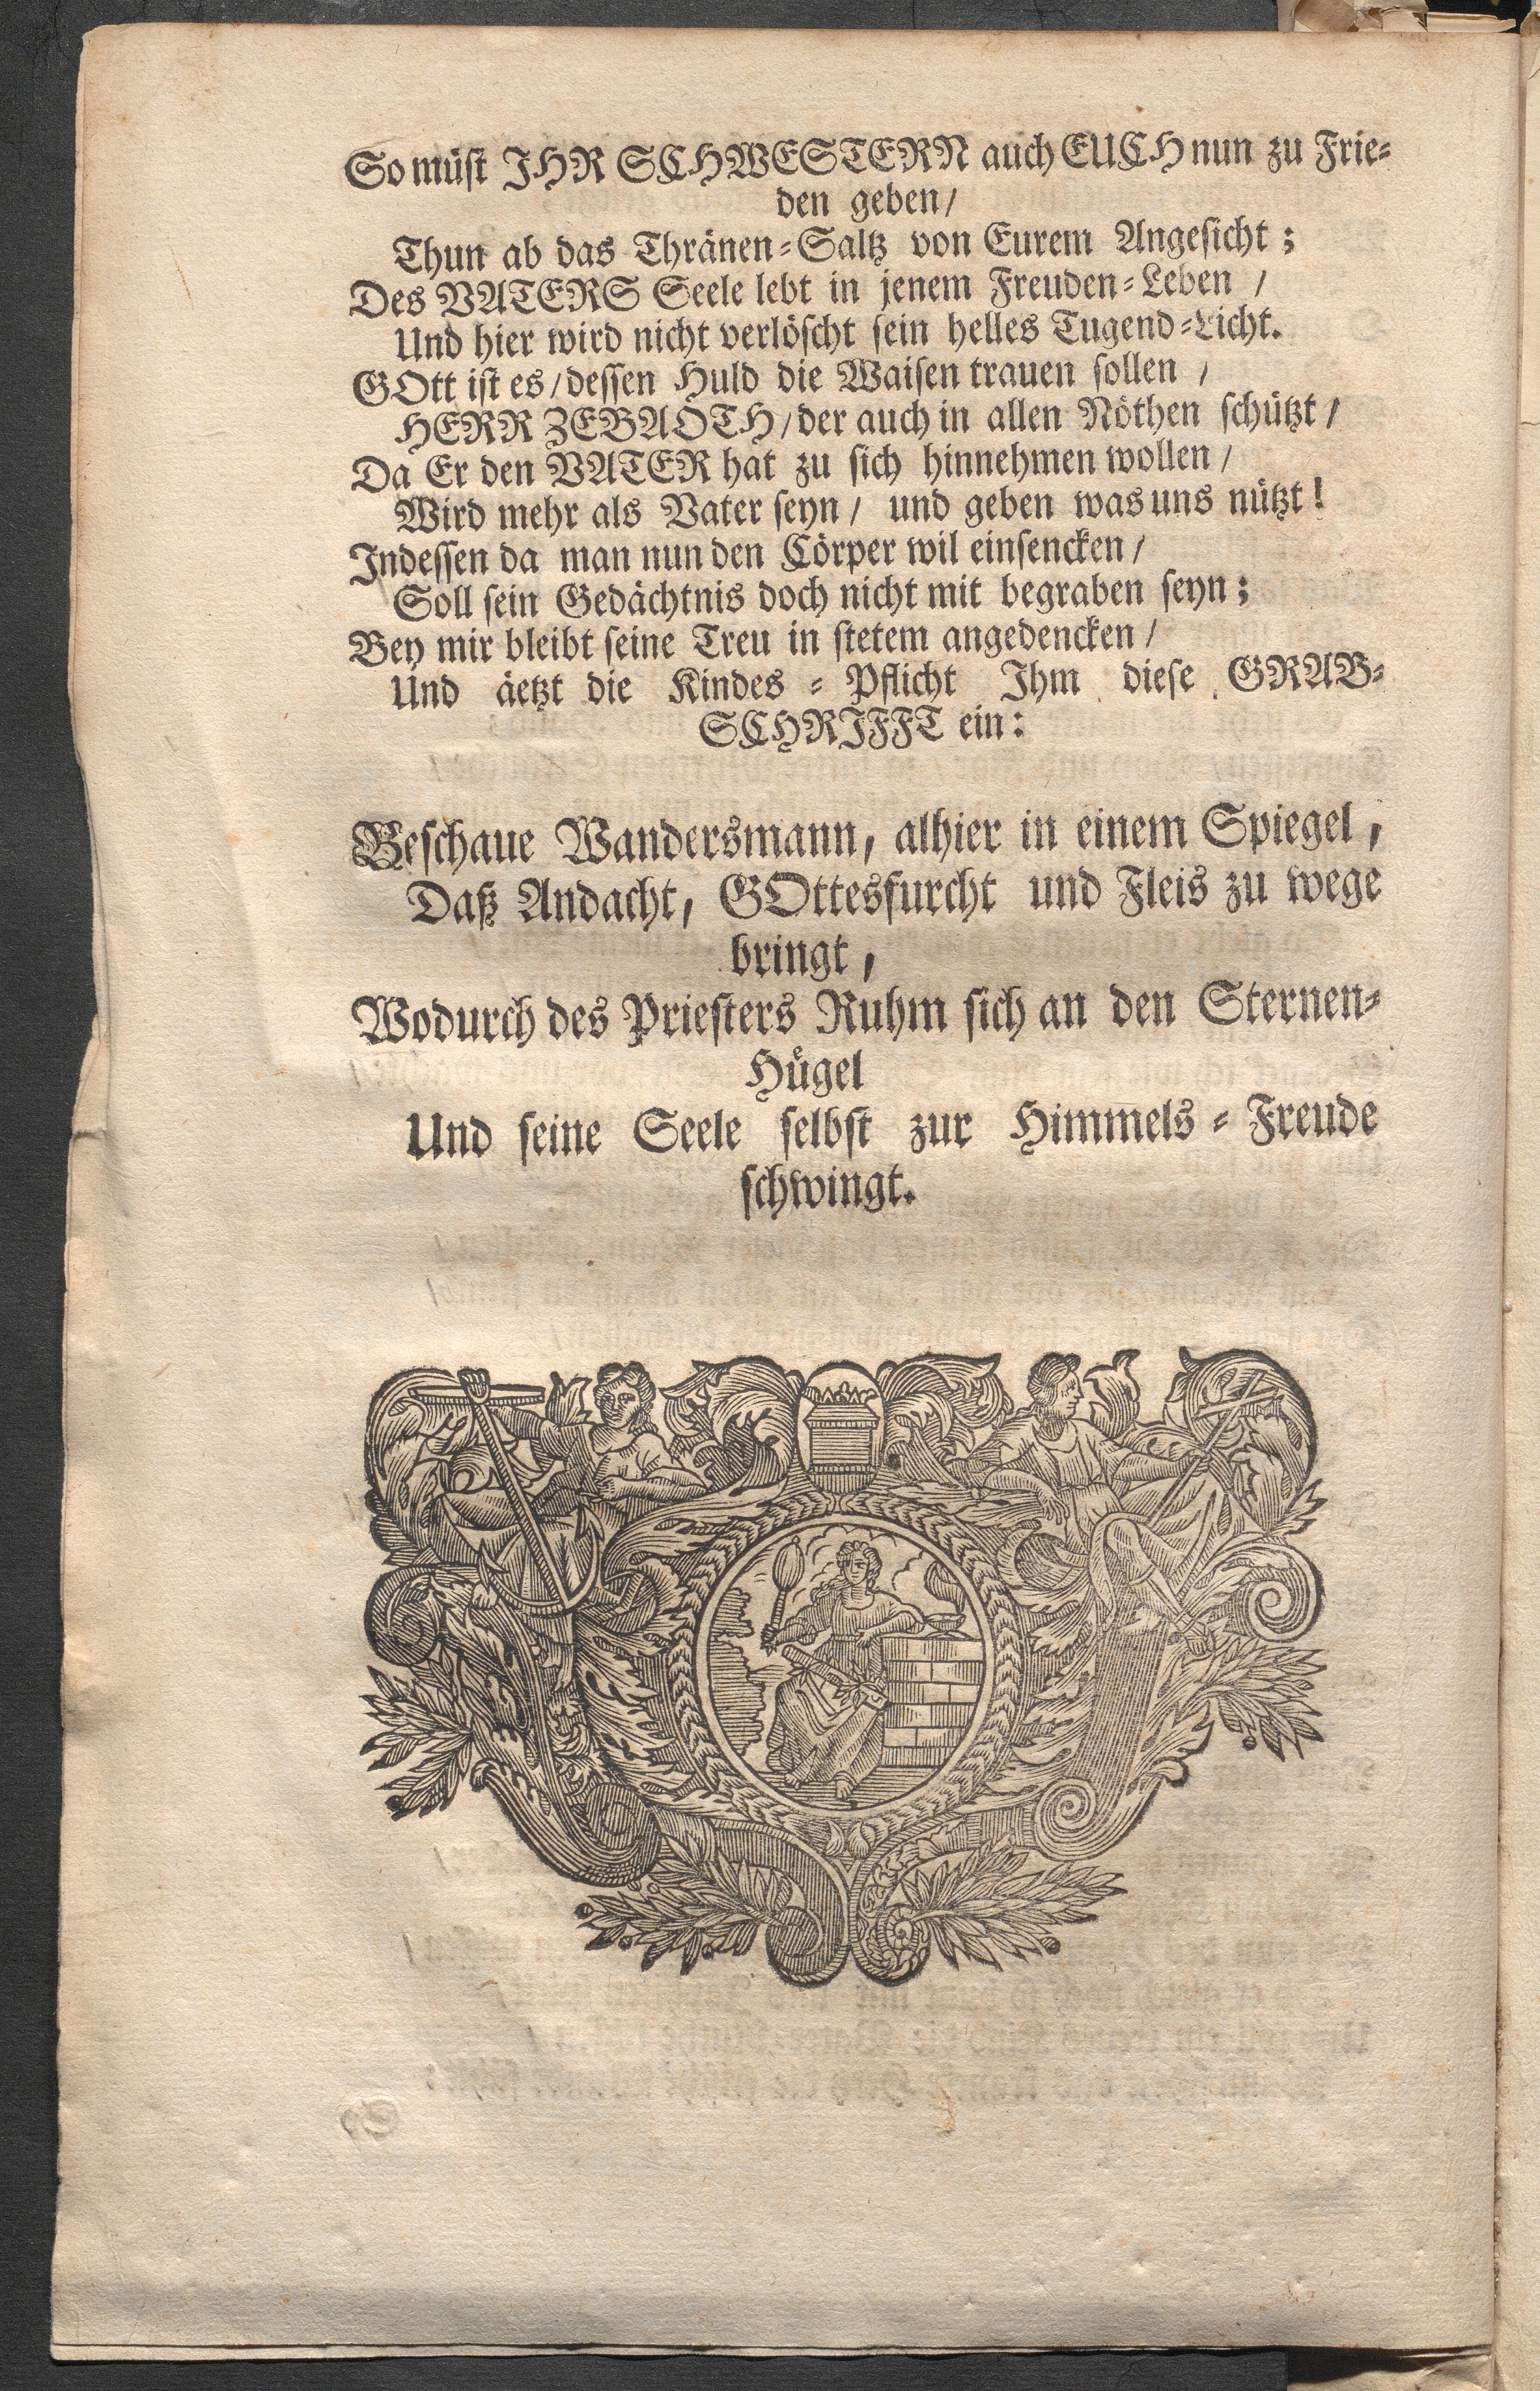 So müst IHR SCHWESTERN auch EUCH nun zu Frie-
den geben/
Thun ab das Thränen-Saltz von Eurem Angesicht;
Des VATERS Seele lebt in jenem Freuden-Leben /
Und hier wird nicht verlöscht sein helles Tugend-Licht.
GOtt ist es/dessen Huld die Waisen trauen sollen /
HERR ZEBAOTH/der auch in allen Nöthen schützt/
Da Er den VATER hat zu sich hinnehmen wollen/
Wird mehr als Vater seyn/ und geben was uns nützt!
Indessen da man nun den Cörper wil einsencken/
Soll sein Gedächtnis doch nicht mit begraben seyn;
Bey mir bleibt seine Treu in stetem angedencken/
Und äetzt die Kindes-Pflicht Ihm diese GRAB-
SCHRIFFT ein:
Beschaue Wandersmann, alhier in einem Spiegel,
Daß Andacht, GOttesfurcht und Fleis zu wege
bringt,
Wodurch des Priesters Ruhm sich an den Sternen-
Hügel
Und seine Seele selbst zur Himmels-Freude
schwingt.